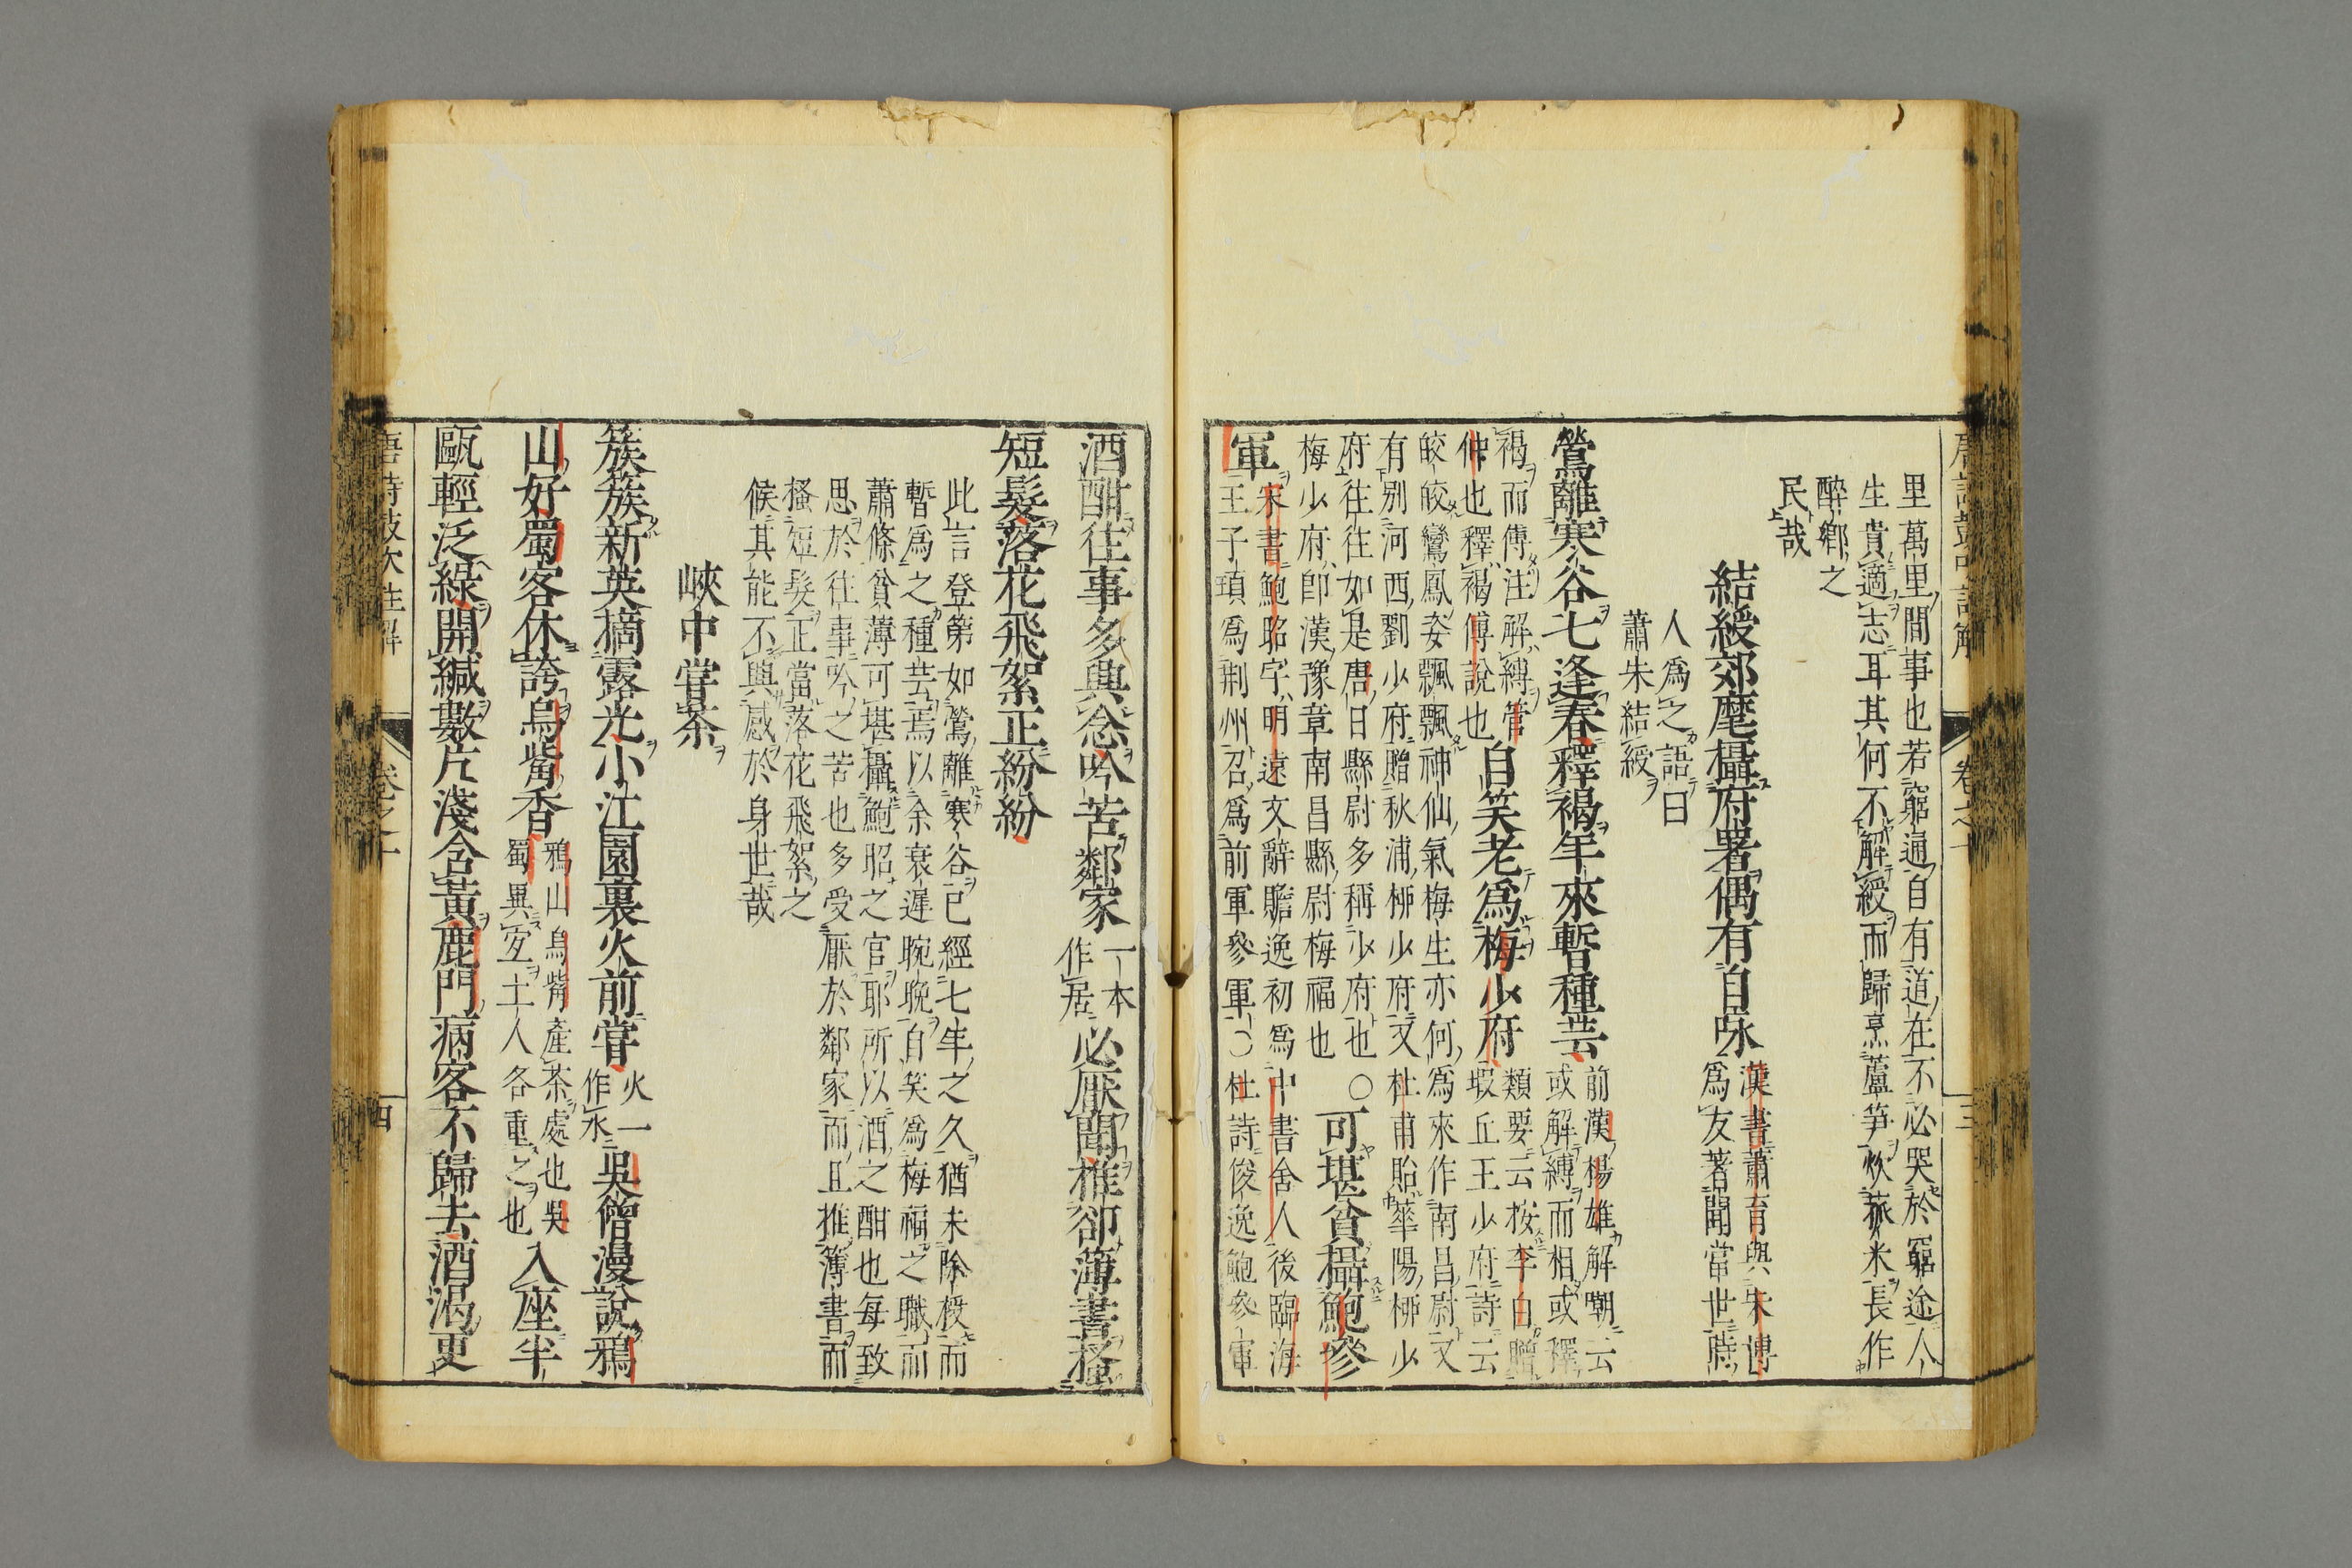 里萬里間事也若窮通自有道在不必哭於窮途人
生貴適志耳其何不解綬而歸烹蘆笋炊菰米長作
醉鄉之
民哉
結綬郊麾攝府署偶有自咏
漢書蕭育與朱博
爲友著聞當世時
人爲之語曰
蕭朱結綬
鶯離寒谷七逢春釋褐年來暫種芸
前漢楊雄解嘲云
或解縛而相或釋
褐而傅注解縛管
仲也釋褐傅說也
自笑老爲梅少府
類要云按李白贈
瑕丘王少府詩云
皎皎鸞鳳姿飄飄神仙氣梅生亦何爲來作南昌尉又
有別河西劉少府贈秋浦柳少府又杜甫貽華陽柳少
府往往如是唐日縣尉多稱少府也○
梅少府卽漢豫章南昌縣尉梅福也
可堪貧攝鮑參
軍
宋書鮑昭字明遠文辭贍逸初爲中書舍人後臨海
王子頊爲荆州召爲前軍參軍○杜詩俊逸鮑參軍
酒酣往事多興念吟苦鄰家
一本
作居
必厭聞推卻簿書搔
短髮落花飛絮正紛紛
此言登第如鶯離寒谷已經七年之久猶未除授而
暫爲之種芸焉以余衰遲晼晚自笑爲梅福之職而
蕭條貧薄可堪攝鮑昭之官耶所以酒之酣也每致
思於往事吟之苦也多受厭於鄰家而且推簿書而
搔短髮正當落花飛絮之
候其能不興感於身世哉
峽中嘗茶
簇簇新英摘露光小江園裏火前嘗
火一
作水
吳僧漫說鴉
山好蜀客休誇鳥觜香
鴉山鳥觜產茶處也吳
蜀異宜土人各重之也
入座半
甌輕泛綠開緘數片淺含黃鹿門病客不歸去酒渴更
卷之十
三
四